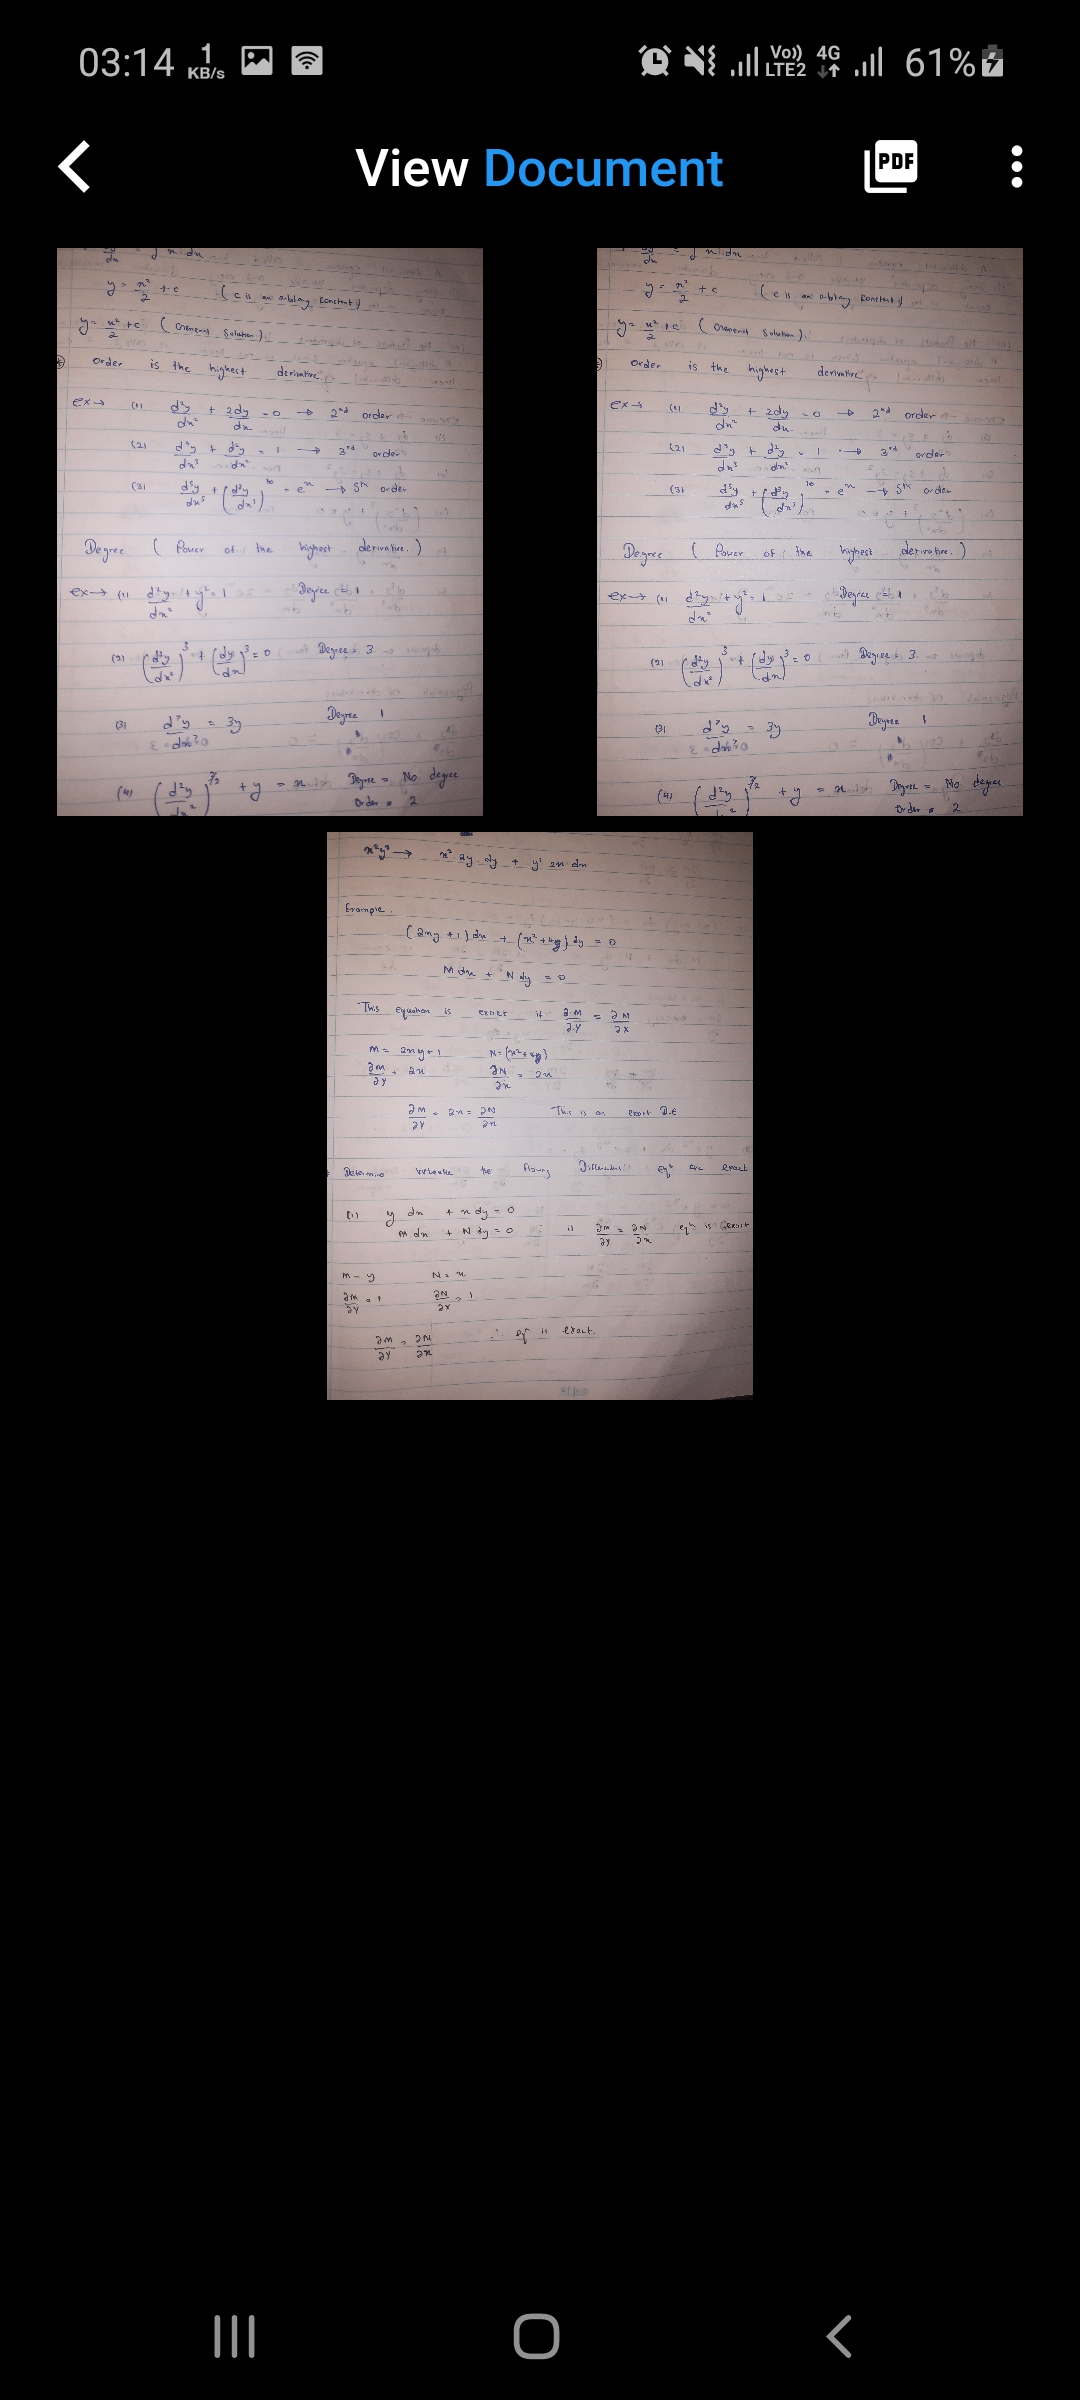 03:14 1 KB/s Vo)) LTE2 4G 61%
View Document PDF
y = x²/2 + c (c is an arbitary constant)
y = x²/2 + c (General Solution)
Order is the highest derivative.
ex→ (1) d²y/dx² + 2dy/dx = 0 → 2nd order
(2) d³y/dx³ + d²y/dx² = 1 → 3rd order
(3) d⁵y/dx⁵ + (d³y/dx³)¹⁰ = eˣ → 5th order
Degree ( Power of the highest derivative. )
ex→ (1) d²y/dx² + y² = 1 Degree = 1
(2) (d²y/dx²)³ + (dy/dx)³ = 0 Degree = 3
(3) d⁷y/dx⁷ = 3y Degree 1
(4) (d²y/dx²) + y = x Degree = No degree
Order = 2
y = x²/2 + c (c is an arbitary constant)
y = x²/2 + c (General Solution)
Order is the highest derivative
ex→ (1) d²y/dx² + 2dy/dx = 0 → 2nd order
(2) d³y/dx³ + d²y/dx² = 1 → 3rd order
(3) d⁵y/dx⁵ + (d³y/dx³)¹⁰ = eˣ → 5th order
Degree ( Power of the highest derivative. )
ex→ (1) d²y/dx² + y² = 1 Degree = 1
(2) (d²y/dx²)³ + (dy/dx)³ = 0 Degree = 3
(3) d⁷y/dx⁷ = 3y Degree 1
(4) (d²y/dx²) + y = x Degree = No degree
Order = 2
x²y² → x² 2y dy + y² 2x dx
Example.
(2xy + 1) dx + (x² + 4y) dy = 0
M dx + N dy = 0
This equation is exact if ∂M/∂y = ∂N/∂x
M = 2xy + 1 N = (x² + 4y)
∂M/∂y = 2x ∂N/∂x = 2x
∂M/∂y = 2x = ∂N/∂x This is an exact D.E
Determine eqⁿ are exact
(1) y dx + x dy = 0
M dx + N dy = 0 if ∂M/∂y = ∂N/∂x eqⁿ is exact
M = y N = x
∂M/∂y = 1 ∂N/∂x = 1
∂M/∂y = ∂N/∂x ∴ eqⁿ is exact.